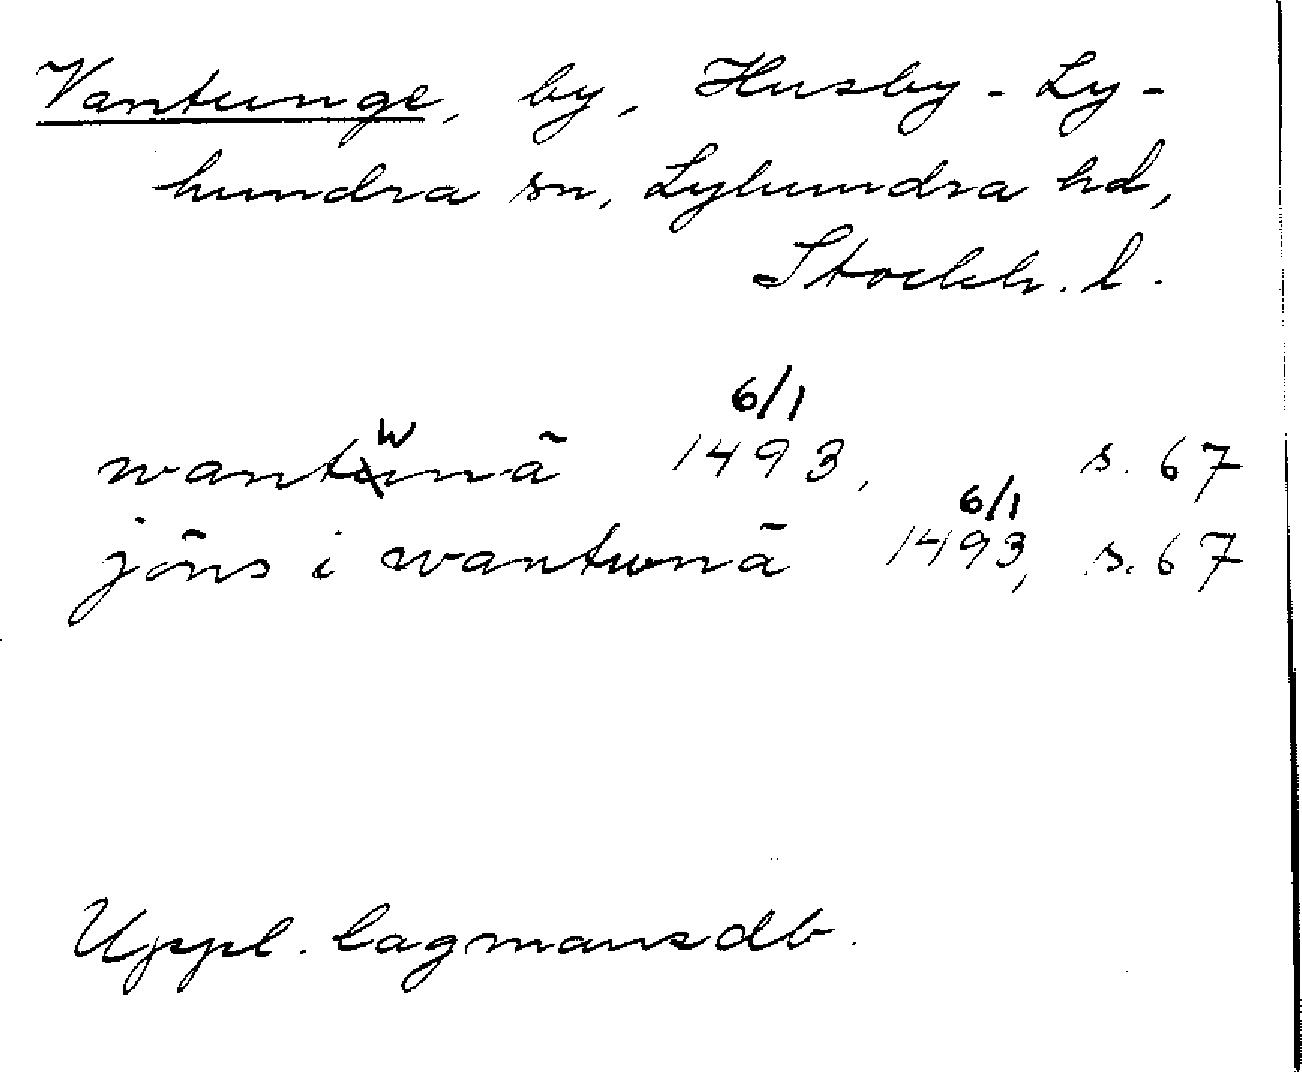 Vantunge, by, Husby-Ly-
hundra sn, Lyhundra hd,
Stockh. l.
wantwnä 6/1 1493, s. 67
jöns i wantwnä 6/1 1493, s. 67
Uppl. lagmansdb.